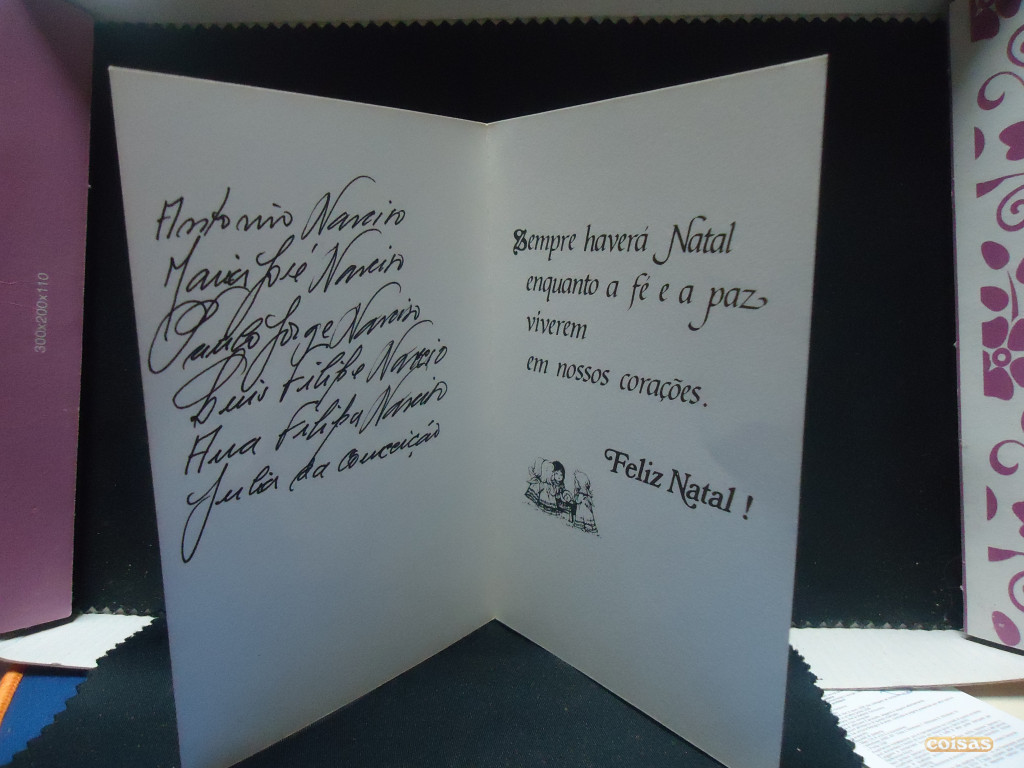 Antonio Narciso
Maria José Narciso
Paulo Jorge Narciso
Luis Filipe Narciso
Ana Filipa Narciso
Julia da Conceição
Sempre haverá Natal
enquanto a fé e a paz
viverem
em nossos corações.
Feliz Natal !
300x200x110
coisas